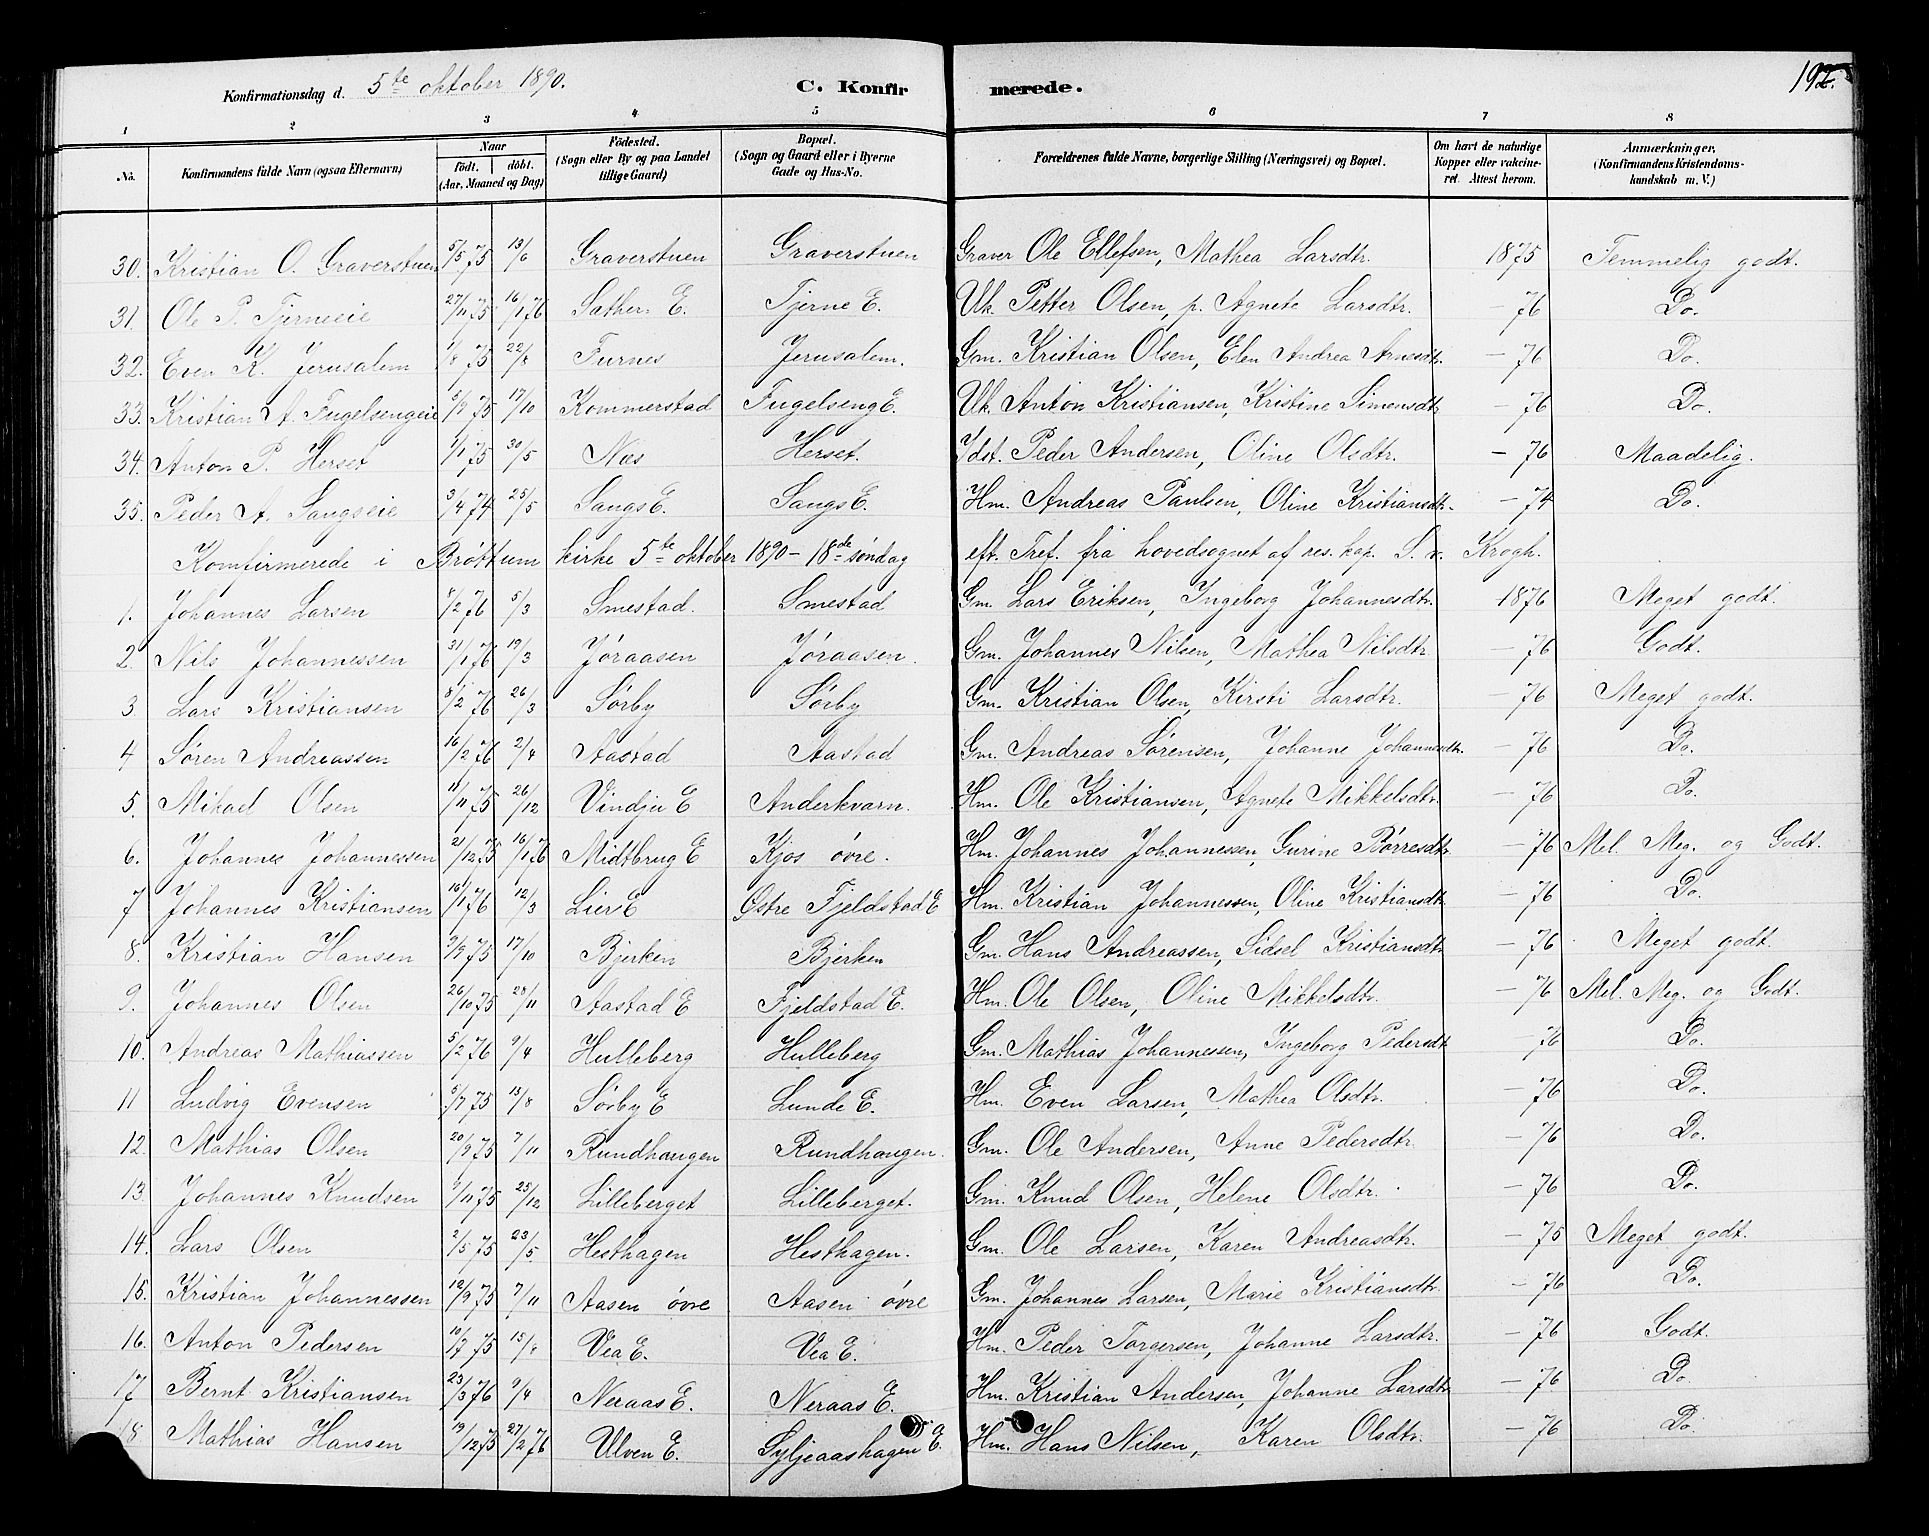 Konfirmationsdag d. 5te oktober 1890. C. Konfirmerede. 192.
1 2 3 4 5 6 7 8
No. Konfirmandens fulde Navn (ogsaa Efternavn) Naar født. døbt. (Aar, Maaned og Dag) Fødested. (Sogn eller By og paa Landet tillige Gaard) Bopæl. (Sogn og Gaard eller i Byerne Gade og Hus-No. Forældrenes fulde Navne, borgerlige Stilling (Næringsvei) og Bopæl. Om havt de naturlige Kopper eller vakcineret. Attest herom. Anmærkninger, (Konfirmandens Kristendomskundskab m. V.)
30. Kristian O. Graverstuen 5/5 75 13/6 Graverstuen Graverstuen Graver Ole Ellefsen, Mathea Larsdtr. 1875 Temmelig godt.
31. Ole P. Tjerneeie 27/11 75 16/1 76 Sathern E. Tjerne E. Uk. Petter Olsen, p. Agnete Larsdtr. – 76 Do.
32. Even K. Jerusalem 1/8 75 22/8 Furnes Jerusalem. Gm. Kristian Olsen, Elen Andrea Arnesdtr. – 76 Do.
33. Kristian A. Fugelsengeie 5/9 75 17/10 Kommerstad Fugelseng E. Uk. Anton Kristiansen, Kristine Simensdtr – 76 Do.
34. Anton P. Herset 1/1 75 30/5 Næs Herset. Idst. Peder Andersen, Oline Olsdtr. – 76 Maadelig.
35. Peder A. Sangseie 3/4 74 25/5 Sangs E. Sangs E. Hm. Andreas Paulsen, Oline Kristiansdtr. – 74 Do.
Komfirmerede i Brøttum kirke 5te oktober 1890 – 18de søndag eft. Tref. fra hovedsognet af res. kap. S. v. Krogh.
1. Johannes Larsen 8/2 76 5/3 Smestad. Smestad Gm. Lars Eriksen, Ingeborg Johannesdtr. 1876 Meget godt.
2. Nils Johannessen 31/1 76 19/3 Jøraasen Jøraasen. Gm. Johannes Nilsen, Mathea Nilsdtr. – 76 Godt.
3 Lars Kristiansen 5/2 76 26/3 Sørby Sørby Gm. Kristian Olsen, Kirsti Larsdtr. – 76 Meget godt.
4 Søren Andreassen 16/2 76 2/4 Aastad Aastad Gm. Andreas Sørensen, Johanne Johannesdtr. – 76 Do.
5. Mikael Olsen 11/11 75 26/12 Vindju E Anderkvarn. Hm. Ole Kristiansen, Agnete Mikkelsdtr. – 76 Do.
6. Johannes Johannessen 21/12 75 16/1 76 Midtbrug E Kjos øvre. Hm. Johannes Johannessen, Gurine Børresdtr – 76 Mel. Meg. og Godt.
7 Johannes Kristiansen 16/1 76 12/3 Lier E Østre Fjeldstad E Hm. Kristian Johannessen, Oline Kristiansdtr. – 76 Do.
8. Kristian Hansen 9/9 75 17/10 Bjerken Bjerken Gm. Hans Andreassen, Sidsel Kristiansdtr – 76 Meget godt.
9. Johannes Olsen 26/10 75 28/11 Aastad E Fjeldstad E. Hm. Ole Olsen, Oline Mikkelsdtr. – 76 Mel. Meg. og Godt.
10. Andreas Mathiassen 5/2 76 9/4 Hulleberg Hulleberg Gm. Mathias Johannessen, Ingeborg Pedersdtr – 76 Do.
11 Ludvig Evensen 5/7 75 15/8 Sørby E Lunde E. Hm. Even Larsen, Mathea Olsdtr. – 76 Do.
12. Mathias Olsen 20/9 75 7/11 Rundhaugen Rundhaugen. Gm. Ole Andersen, Anne Pedersdtr. – 76 Do.
13. Johannes Knudsen 9/11 75 25/12 Lilleberget Lilleberget. Gm. Knud Olsen, Helene Olsdtr. – 76 Do.
14. Lars Olsen 2/5 75 23/5. Hesthagen Hesthagen. Gm. Ole Larsen, Karen Andreasdtr. – 75 Meget godt.
15. Kristian Johannessen 12/9 75 7/11 Aasen øvre Aasen øvre Gm. Johannes Larsen, Marie Kristiansdtr. – 76 Do.
16. Anton Pedersen 10/7 75 15/8 Vea E. Vea E. Hm. Peder Torgersen, Johanne Larsdtr. – 76 Godt.
17 Bernt Kristiansen 23/3 76 9/4 Neraas E. Neraas E. Hm. Kristian Andersen, Johanne Larsdtr – 76 Do.
18. Mathias Hansen 19/12 75 27/2 76 Ulven E. Syljeaashagen E. Hm. Hans Nilsen, Karen Olsdtr. – 76 Do.